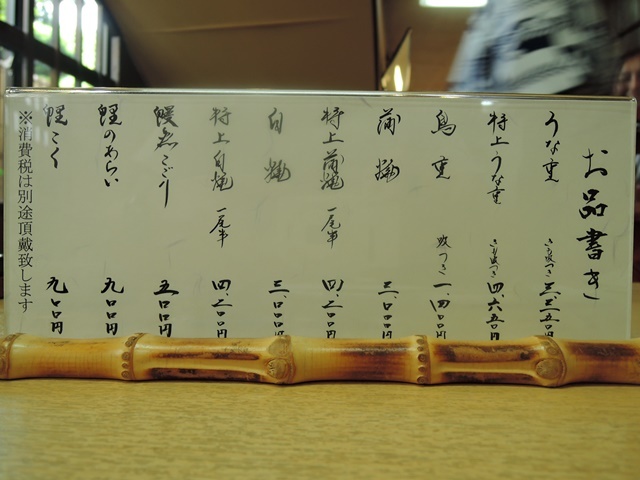 お品書き
うな重 きも吸つき
特上うな重 きも吸つき 四、六五〇円
鳥重 吸つき 一、四〇〇円
蒲焼 三、〇〇〇円
特上蒲焼 一尾半 四、二〇〇円
白焼 三、〇〇〇円
特上白焼 一尾半 四、二〇〇円
鰻煮こごり 五〇〇円
鯉のあらい 九〇〇円
鯉こく 九〇〇円
※消費税は別途頂戴致します